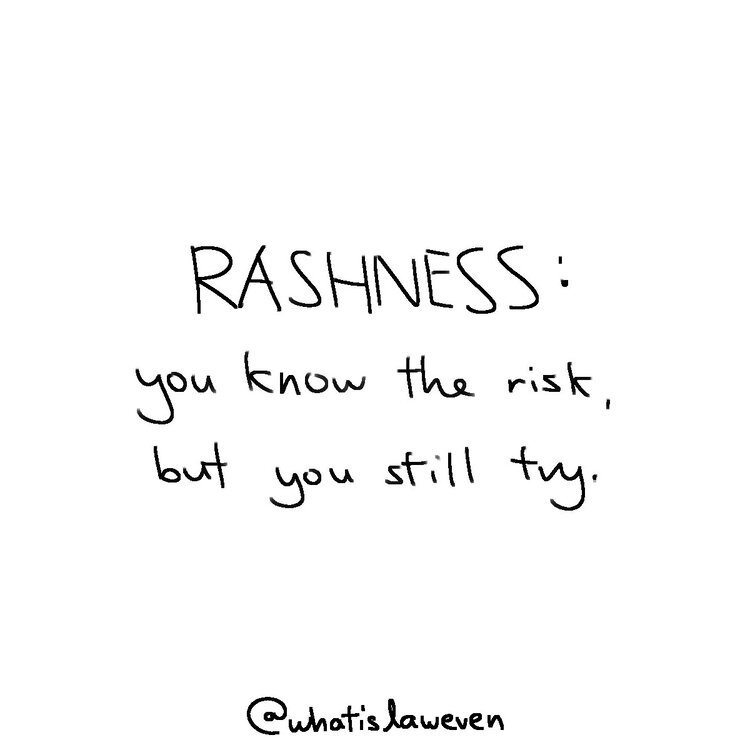 RASHNESS:
you know the risk,
but you still try.
@whatislaweven